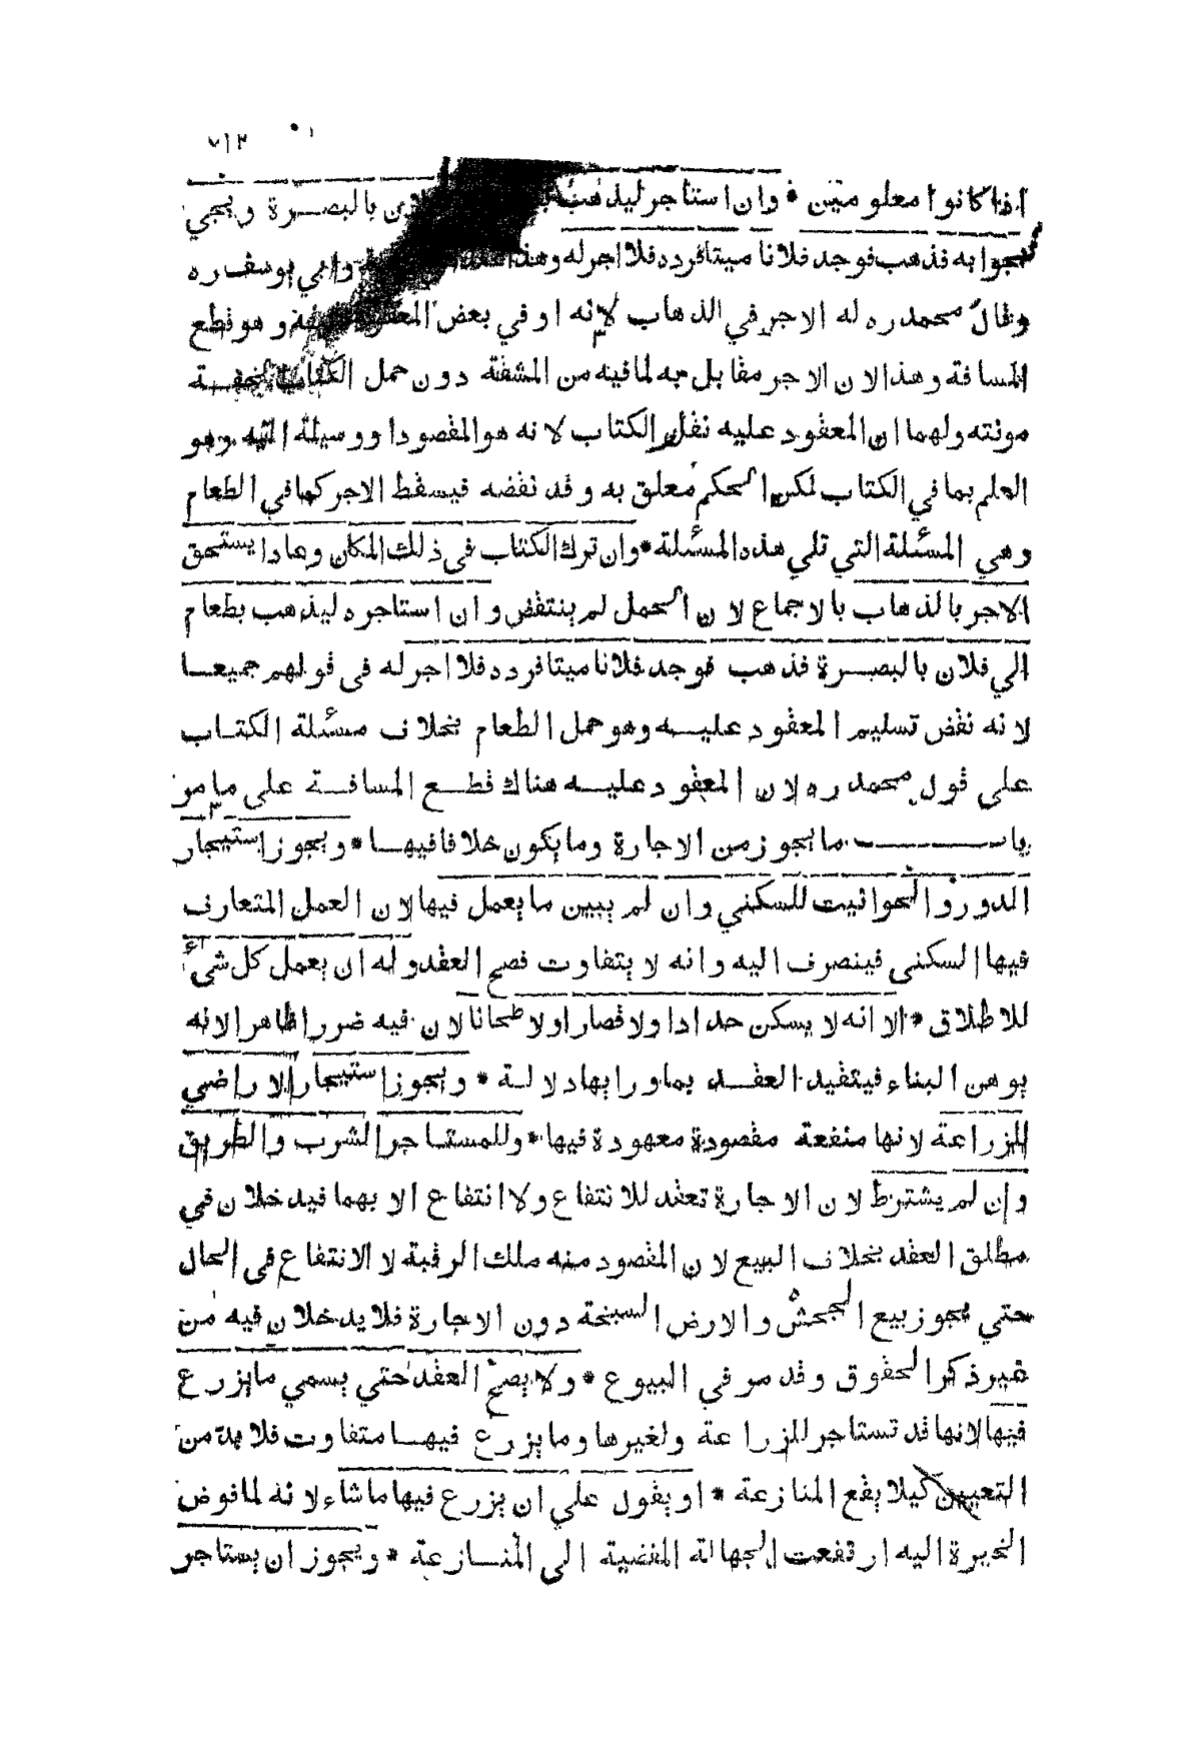 ٧١٣
اذا كانوا معلومين * وان استاجر ليذهب بالبصرة ويجي
بجوابه فذهب فوجد فلانا ميتا فرده فلا اجر له وهذا وابي يوسف ره
وقال محمد ره له الاجر في الذهاب لانه اوفي بعض المعقود وهو قطع
المسافة وهذا لان الاجر مقابل به لما فيه من المشقة دون حمل الكتاب لخفة
مونته ولهما ان المعقود عليه نقل الكتاب لانه هو المقصود او وسيلة اليه وهو
العلم بما في الكتاب لكن الحكم معلق به وقد نقضه فيسقط الاجر كما في الطعام
وهي المسئلة التي تلي هذه المسئلة * وان ترك الكتاب في ذلك المكان وعاد ايستحق
الاجر بالذهاب بالاجماع لان الحمل لم ينتقض وان استاجره ليذهب بطعام
الي فلان بالبصرة فذهب فوجد فلانا ميتا فرده فلا اجر له في قولهم جميعا
لانه نقض تسليم المعقود عليه وهو حمل الطعام بخلاف مسئلة الكتاب
علي قول محمد ره لان المعقود عليه هناك قطع المسافة علي ما مر
باب ما يجوز من الاجارة وما يكون خلافا فيها * ويجوز استيجار
الدور والحوانيت للسكني وان لم يبين ما يعمل فيها لان العمل المتعارف
فيها السكني فينصرف اليه وانه لا يتفاوت فصح العقد وله ان يعمل كل شيء
للاطلاق * الا انه لا يسكن حدادا ولا قصارا ولا طحانا لان فيه ضررا ظاهرا لانه
يوهن البناء فيتقيد العقد بما وراءها دلالة * ويجوز استيجار الاراضي
للزراعة لانها منفعة مقصودة معهودة فيها * وللمستاجر الشرب والطريق
وان لم يشترط لان الاجارة تعقد للانتفاع ولا انتفاع الا بهما فيدخلان في
مطلق العقد بخلاف البيع لان المقصود منه ملك الرقبة لا الانتفاع في الحال
حتي يجوز بيع الجحش والارض السبخة دون الاجارة فلا يدخلان فيه من
غير ذكر الحقوق وقد مر في البيوع * ولا يصح العقد حتي يسمي ما يزرع
فيها لانها قد تستاجر للزراعة ولغيرها وما يزرع فيها متفاوت فلا بد من
التعيين كيلا يقع المنازعة * او يقول علي ان يزرع فيها ما شاء لانه لما فوض
الخيرة اليه ارتفعت الجهالة المفضية الي المنازعة * ويجوز ان يستاجر